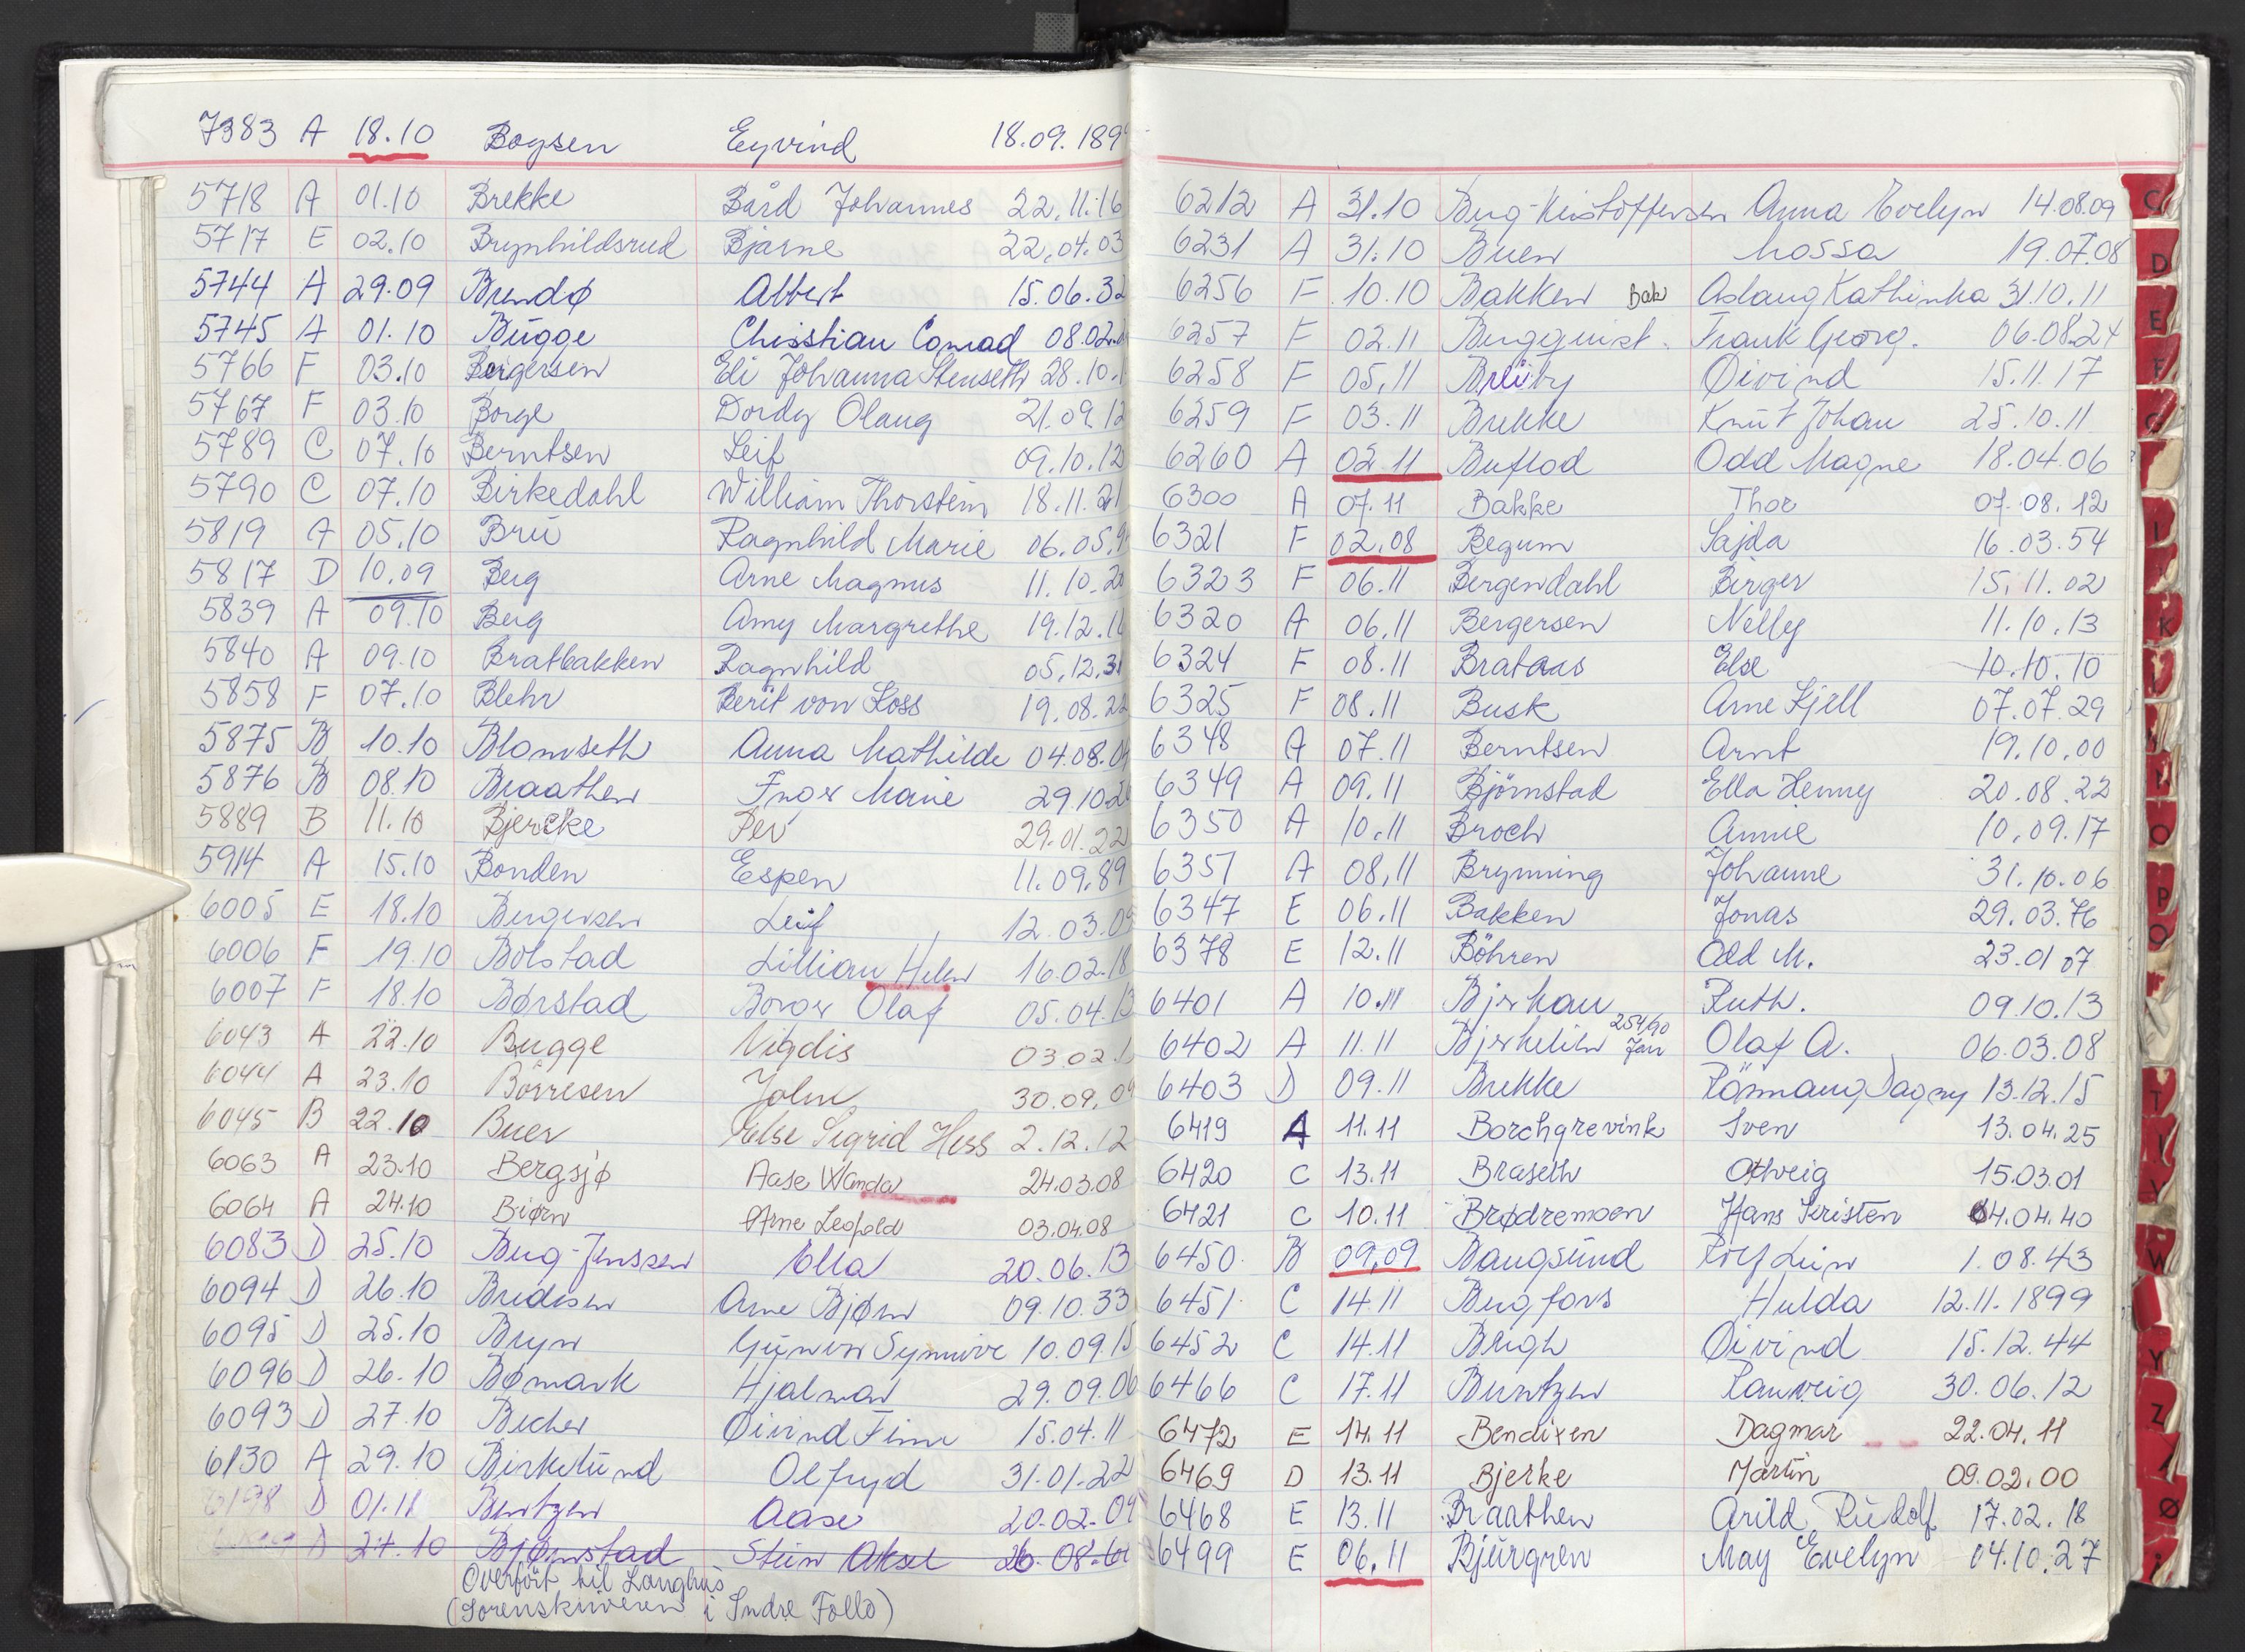 7383 A 18.10 Bogsen Eyvind 18.09.189
5718 A 01.10 Brekke Bård Johannes 22.11.16
5717 E 02.10 Brynhildsrud Bjarne 22.04.03
5744 A 29.09 Brendø Albert 15.06.32
5745 A 01.10 Bugge Chisstian Conrad 08.02.
5766 F 03.10 Borgersen Eli Johanna Stenseth 28.10.1
5767 F 03.10 Borge Dordy Olaug 21.09.12
5789 C 07.10 Berntsen Leif 09.10.12
5790 C 07.10 Birkedahl William Thorstein 18.11.21
5819 A 05.10 Bru Ragnhild Marie 06.05.9
5817 D 10.09 Berg Arne Magnus 11.10.20
5839 A 09.10 Berg Amy Margrethe 19.12.16
5840 A 09.10 Bratbakken Ragnhild 05.12.31
5858 F 07.10 Blehr Berit von Koss 19.08.22
5875 B 10.10 Blomseth Anna Mathilde 04.08.04
5876 B 08.10 Braathen Inger Marie 29.10.26
5889 B 11.10 Bjercke Per 29.01.22
5914 A 15.10 Bonden Espen 11.09.89
6005 E 18.10 Bergersen Leif 12.03.09
6006 F 19.10 Bolstad Lillian Helen 16.02.18
6007 F 18.10 Børstad Borger Olaf 05.04.13
6043 A 22.10 Bugge Vigdis 03.02.1
6044 A 23.10 Börresen John 30.09.09
6045 B 22.10 Buer Else Sigrid Hess 2.12.12
6063 A 23.10 Bergsjø Aase Wanda 24.03.08
6064 A 24.10 Biørn Arne Leopold 03.04.08
6083 D 25.10 Berg-Jenssen Ella 20.06.13
6094 D 26.10 Bredesen Arne Bjørn 09.10.33
6095 D 25.10 Bryn Gunvor Synnøve 10.09.15
6096 D 26.10 Bømark Hjalmar 29.09.06
6093 D 27.10 Becher Øivind Finn 15.04.11
6130 A 29.10 Birkelund Olfryd 31.01.22
6198 D 01.11 Berntzen Aase 20.02.04
D 27.10 Bjørnstad Stein Aksel 26.08.
Overført til Langhus
(Sorenskriveren i Indre Follo)
6212 A 31.10 Berg-Kristoffersen Anna Evelyn 14.08.09
6231 A 31.10 Buen Mossa 19.07.08
6256 F 10.10 Bakken Bak Aslaug Kathinka 31.10.11
6257 F 02.11 Bergquist. Frank Georg. 06.08.24
6258 F 05.11 Breiby Øivind 15.11.17
6259 F 03.11 Brekke Knut Johan 25.10.11
6260 A 02.11 Buflod Odd Magne 18.04.06
6300 A 07.11 Bakke Thor 07.08.12
6321 F 02.08 Begum Sajda 16.03.54
6323 F 06.11 Bergendahl Birger 15.11.02
6320 A 06.11 Bergersen Nelly 11.10.13
6324 F 08.11 Brataas Else 10.10.10
6325 F 08.11 Busk Arne Kjell 07.07.29
6348 A 07.11 Berntsen Arnt 19.10.00
6349 A 09.11 Björnstad Ella Henny 20.08.22
6350 A 10.11 Broch Annie 10.09.17
6351 A 08.11 Brynning Johanne 31.10.06
6347 E 06.11 Bakken Jonas 29.03.76
6378 E 12.11 Böhren Odd M. 23.01 07
6401 A 10.11 Bjerkan Ruth. 09.10.13
6402 A 11.11 Bjerkelien 254/90 Jan Olaf A. 06.03.08
6403 D 09.11 Brekke Rönnaug Dagny 13.12.15
6419 A 11.11 Borchgrevink Sven 13.04.25
6420 C 13.11 Braseth Othveig 15.03.01
6421 C 10.11 Brødremoen Hans Kristen 04.04.40
6450 B 09.09 Baugsund Rolf Lein 1.08.43
6451 C 14.11 Bergfors Hulda 12.11.1899
6452 C 14.11 Bergh Øivind 15.12.44
6466 C 17.11 Berntzen Ranveig 30.06.12
6472 E 14.11 Bendixen Dagmar 22.04.11
6469 D 13.11 Bjerke Martin 09.02.00
6468 E 13.11 Braathen Arild Rudolf 17.02.18
6499 E 06.11 Bjurgren May Evelyn 04.10.27
C
D
E
F
G
I
K
N
O
P
Q
T
V
W
Y
Z
Ø